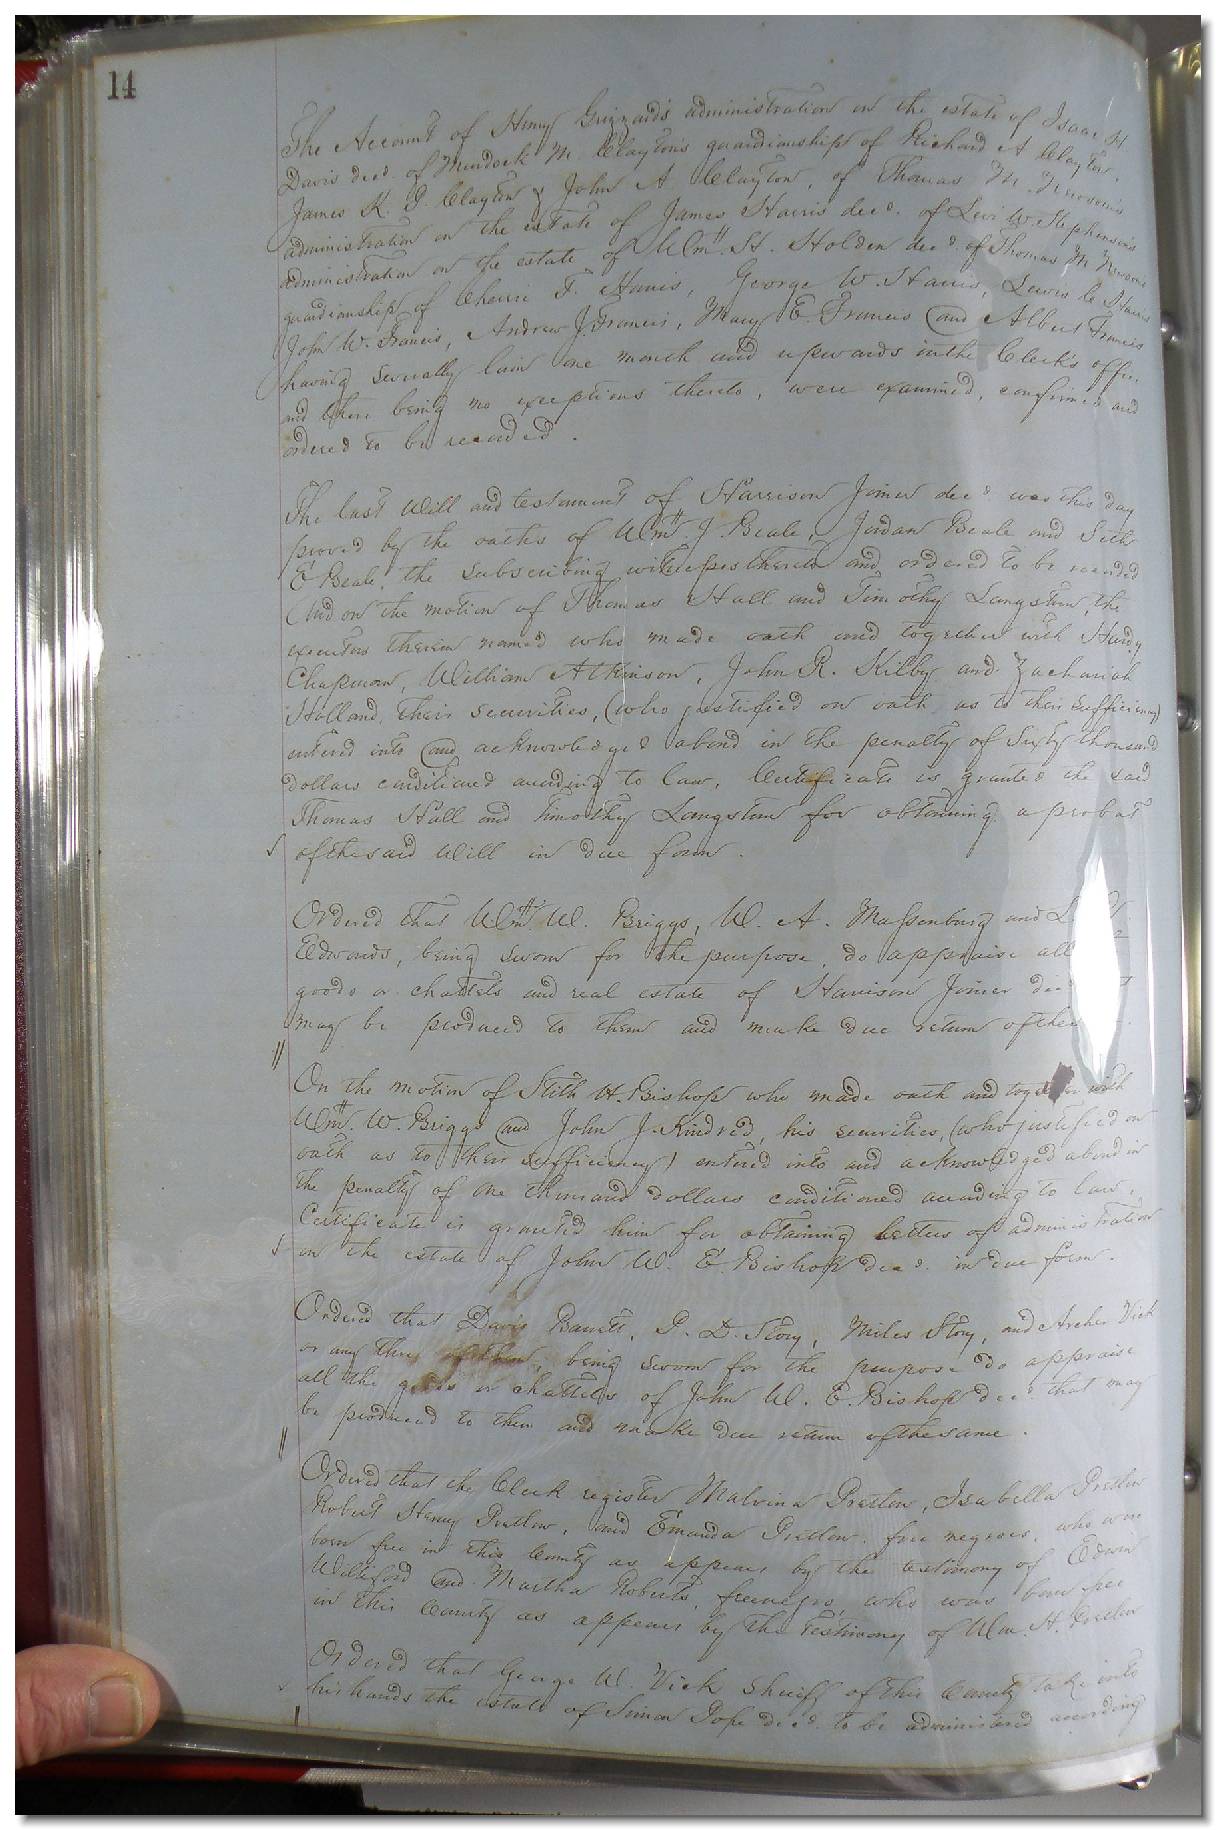 14
The Account of Henry Grizzard's administration on the estate of Isaac H
Davis decd. of Murdock M. Clayton's guardianship of Richard A Clayton,
James R. P. Clayton & John A Clayton, of Thomas M. Newsom's
administration on the estate of James Harris decd. of Levi W. Stephenson's
administration on the estate of Wm. H. Holden decd. of Thomas M Newsom's
guardianship of Cherri F. Harris, George W. Harris, Lewis C Harris
John W. Francis, Andrew J. Francis, Mary E. Francis and Albert Francis
having severally lain one month and upwards in the Clerk's office
and there being no exceptions thereto, were examined, confirmed and
ordered to be recorded.
The last Will and testament of Harrison Joiner decd was this day
proved by the oaths of Wm. J. Beale, Jordan Beale and Seth
E Beale the subscribing witnesses thereto and ordered to be recorded
And on the motion of Thomas Hall and Timothy Langston, the
executors therein named who made oath and together with Hardy
Chapman, William Atkinson, John R. Kilby and Zachariah
Holland, their securities, (who justified on oath as to their sufficiency)
entered into and acknowledged a bond in the penalty of Sixty thousand
dollars conditioned according to law, Certificate is granted the said
Thomas Hall and Timothy Langston for obtaining a probat
of the said Will in due form.
Ordered that Wm. W. Briggs, W. A. Massenburg and
Edwards, being sworn for the purpose, do appraise all
goods or chattels and real estate of Harrison Joiner decd
may be produced to them and make due return of the
On the motion of Stith H. Bishop who made oath and together with
Wm. W. Briggs and John J. Kindred, his securities, (who justified on
oath as to their sufficiency) entered into and acknowledged a bond in
the penalty of one thousand dollars conditioned according to law,
Certificate is granted him for obtaining letters of administration
on the estate of John W. E. Bishop decd. in due form.
Ordered that Davis Barrett, P. D. Story, Miles Story, and Archer Vick
or any three of them, being sworn for the purpose do appraise
all the goods or chattels of John W. E. Bishop decd. that may
be produced to them and make due return of the same.
Ordered that the Clerk register Malvina Pretlow, Isabella Pretlow
Robert Henry Pretlow, and Emanda Pretlow, free negroes, who were
born free in this County as appears by the testimony of Edwin
Williford and Martha Roberts, free negro, who was born free
in this County as appears by the testimony of Wm. H. Pretlow
Ordered that George W. Vick Sheriff of this County take into
his hands the estate of Simon Pope decd. to be administered according